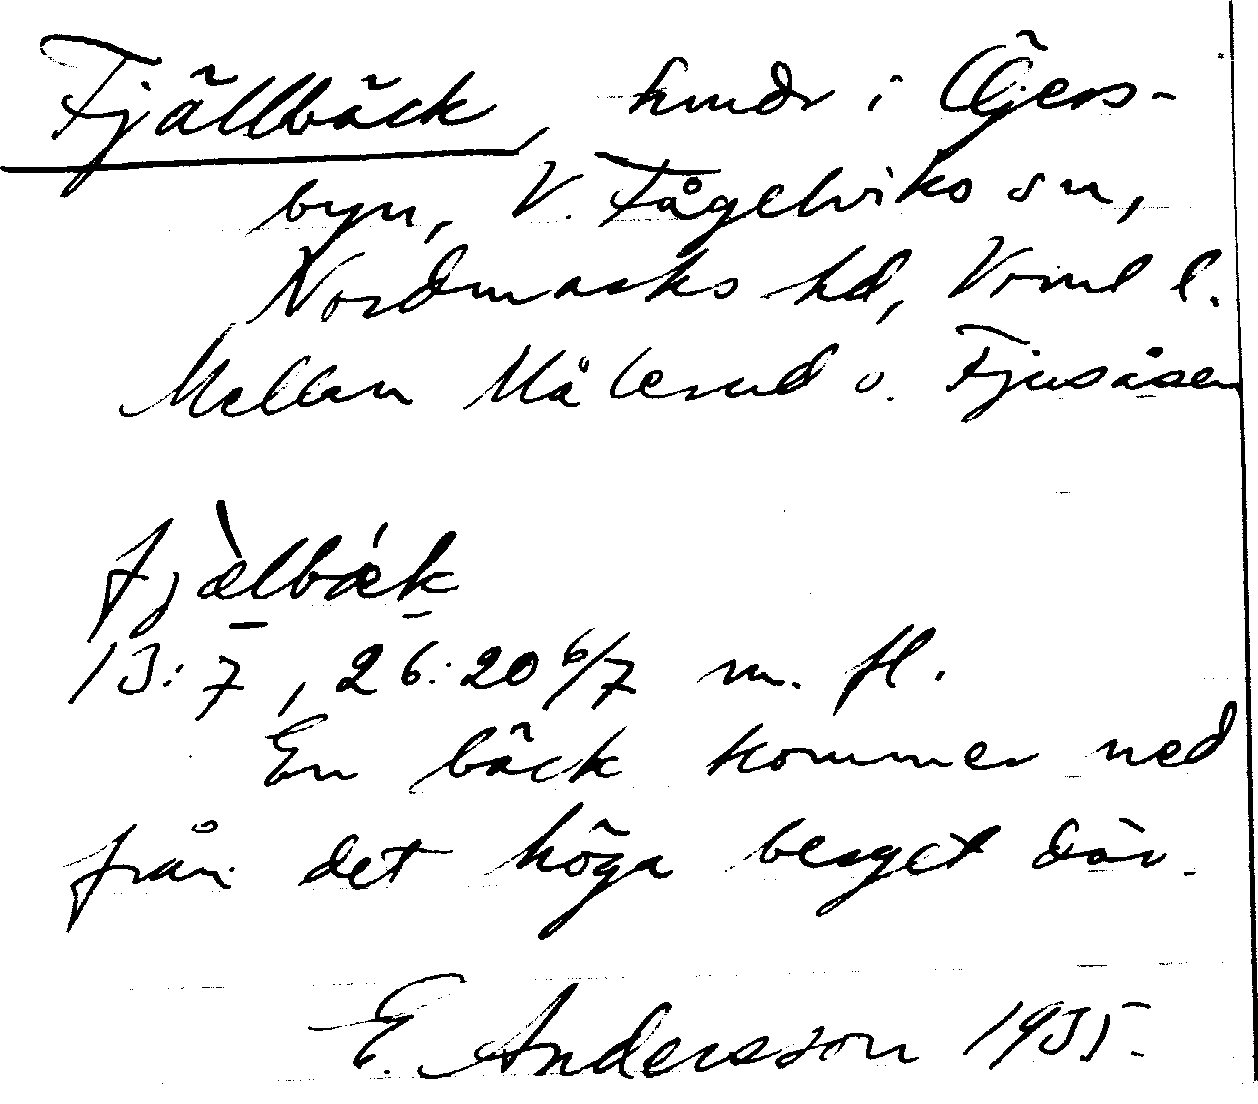 Fjällbäck, hmdr i Öjers-
byn, V. Fågelviks sn,
Nordmarks hd, Vrml l.
Mellan Målerud o. Fjusåsen
fjæ̀lbǽk
13:7, 26:20 6/7 m. fl.
En bäck kommer ned
från det höga berget där.
E. Andersson 1935.